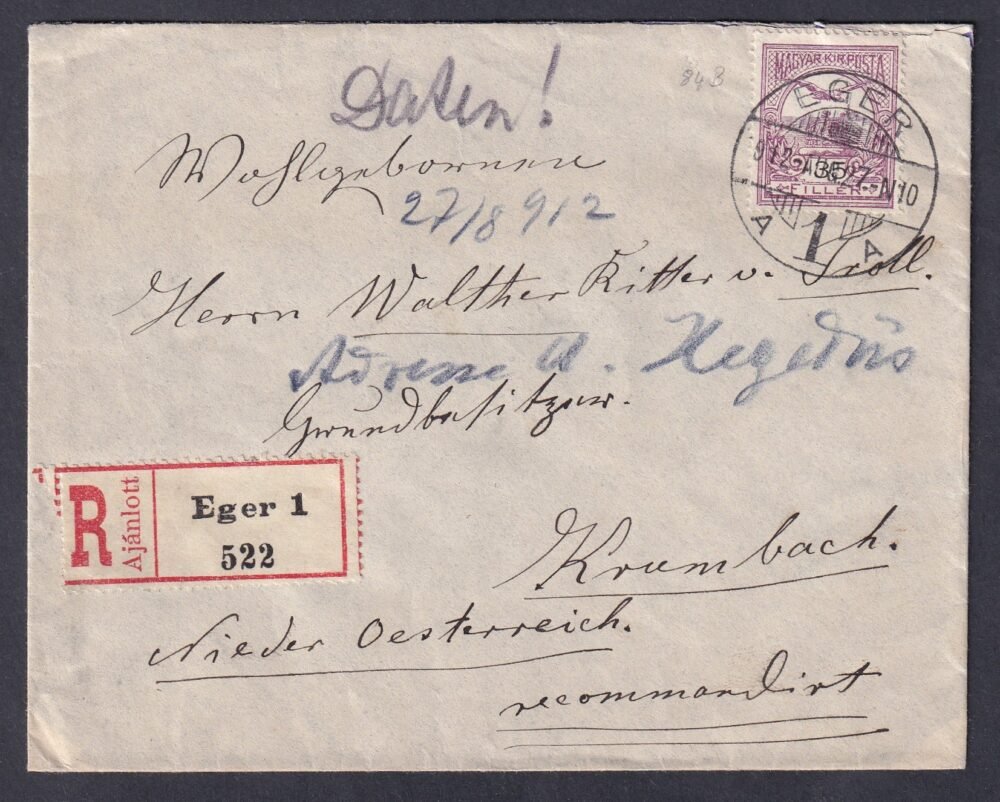 Daten!
84B
MAGYAR KIR. POSTA
35
FILLÉR
EGER
N10
A 1 A
Wohlgebornen
27/8 912
Herrn Walther Ritter v. Troll.
Adresse Hegedüs
Grundbesitzer.
R Ajánlott
Eger 1
522
Krumbach.
Nieder Oesterreich.
recommandirt